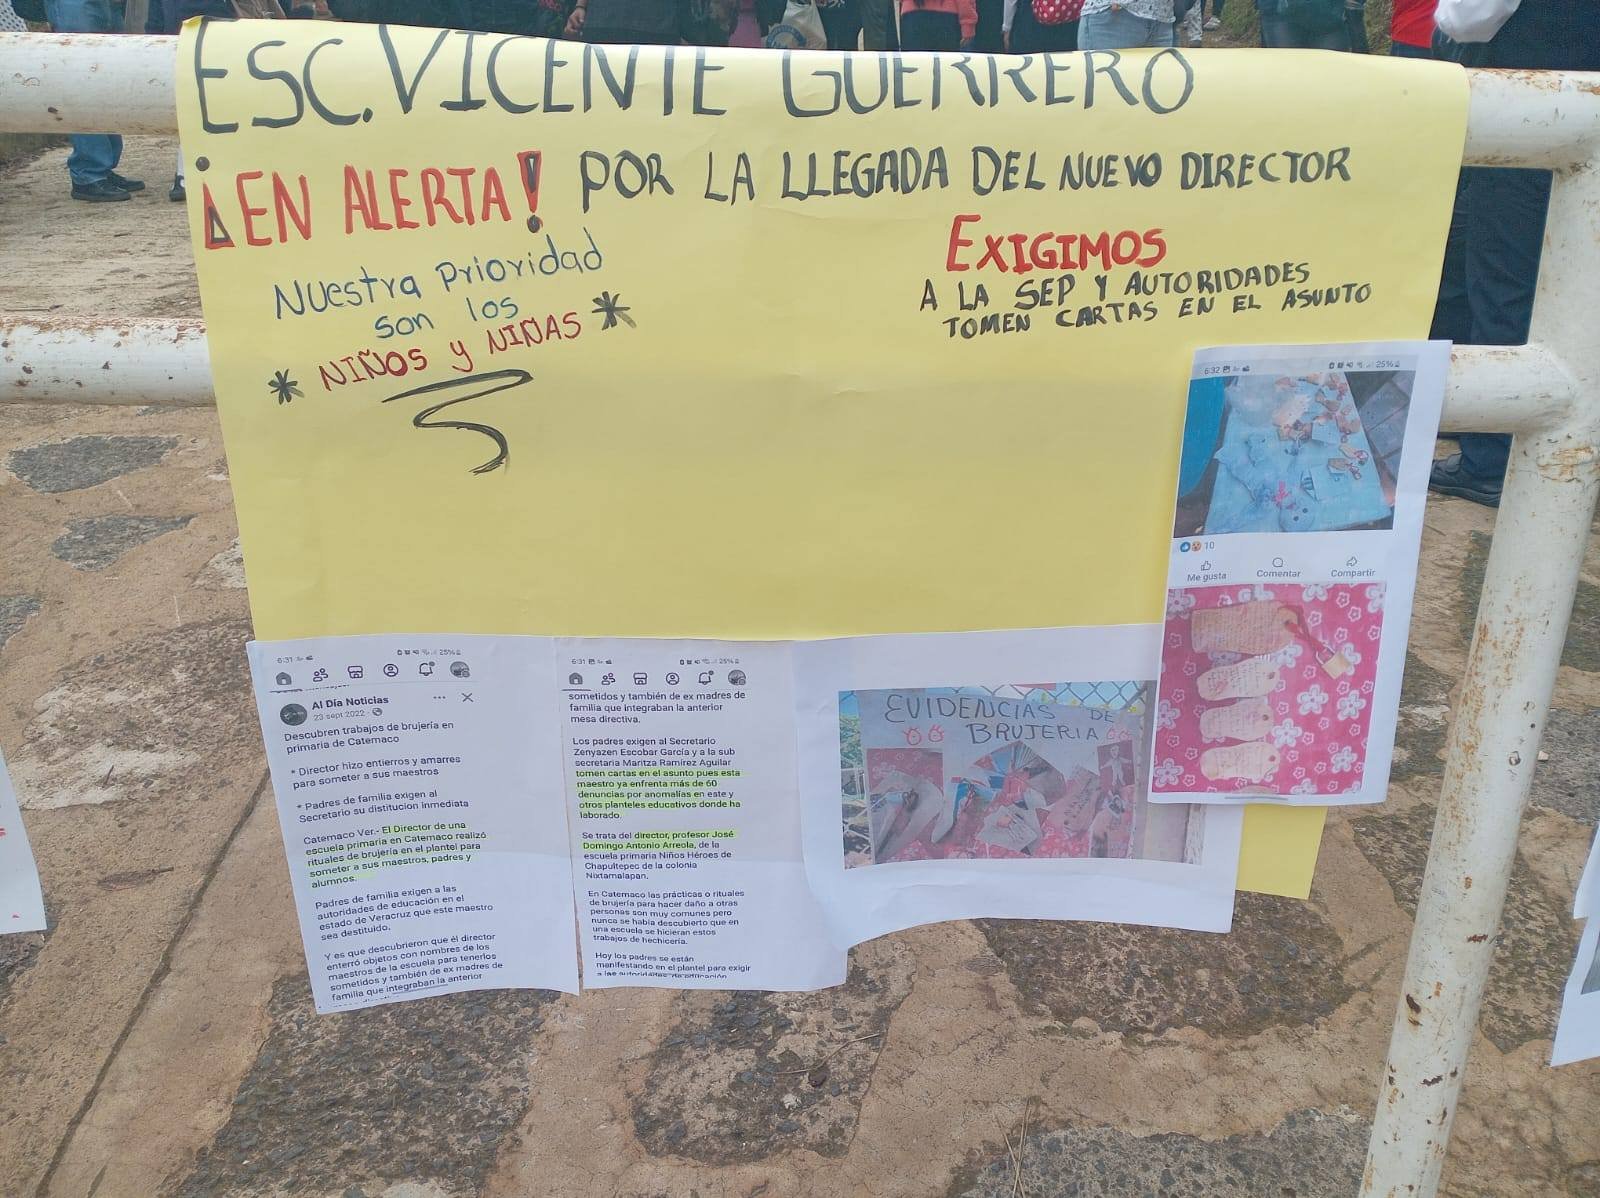 ESC. VICENTE GUERRERO
¡EN ALERTA! POR LA LLEGADA DEL NUEVO DIRECTOR
Nuestra prioridad
son los
* NIÑOS y NIÑAS *
EXIGIMOS
A LA SEP Y AUTORIDADES
TOMEN CARTAS EN EL ASUNTO
6:32
25%
10
Me gusta
Comentar
Compartir
6:31
25%
Al Día Noticias
23 sept 2022
Descubren trabajos de brujería en
primaria de Catemaco
* Director hizo entierros y amarres
para someter a sus maestros
* Padres de familia exigen al
Secretario su distitucion inmediata
Catemaco Ver.- El Director de una
escuela primaria en Catemaco realizó
rituales de brujería en el plantel para
someter a sus maestros, padres y
alumnos.
Padres de familia exigen a las
autoridades de educación en el
estado de Veracruz que este maestro
sea destituido.
Y es que descubrieron que él director
enterró objetos con nombres de los
maestros de la escuela para tenerlos
sometidos y también de ex madres de
familia que integraban la anterior
6:31
25%
sometidos y también de ex madres de
familia que integraban la anterior
mesa directiva.
Los padres exigen al Secretario
Zenyazen Escobar García y a la sub
secretaria Maritza Ramírez Aguilar
tomen cartas en el asunto pues esta
maestro ya enfrenta más de 60
denuncias por anomalías en este y
otros planteles educativos donde ha
laborado.
Se trata del director, profesor José
Domingo Antonio Arreola, de la
escuela primaria Niños Héroes de
Chapultepec de la colonia
Nixtamalapan.
En Catemaco las prácticas o rituales
de brujería para hacer daño a otras
personas son muy comunes pero
nunca se había descubierto que en
una escuela se hicieran estos
trabajos de hechicería.
Hoy los padres se están
manifestando en el plantel para exigir
a las autoridades de educación
EVIDENCIAS DE
BRUJERIA